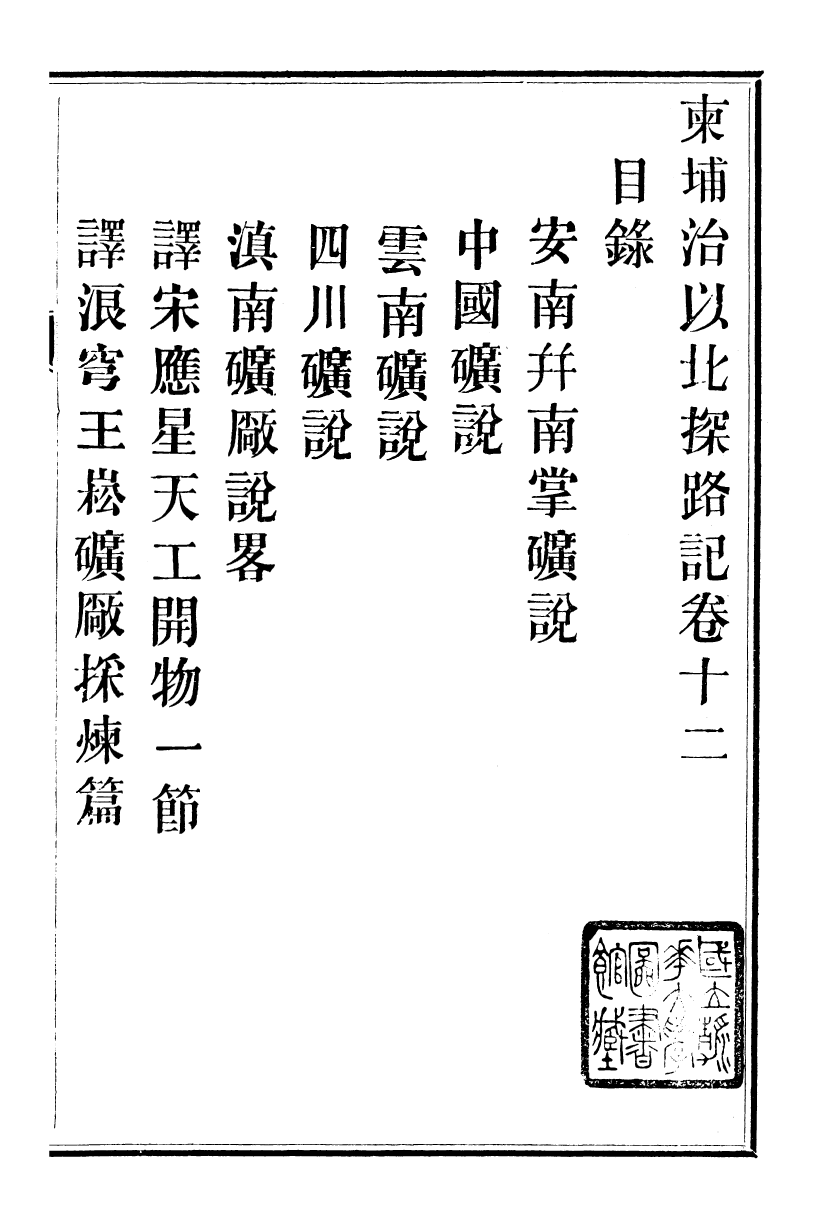 柬埔治以北探路記卷十二
目錄
安南幷南掌礦說
中國礦說
雲南礦說
四川礦說
滇南礦厰說畧
譯宋應星天工開物一節
譯浪穹王崧礦厰採煉篇
國立清
華大學
圖書
館藏